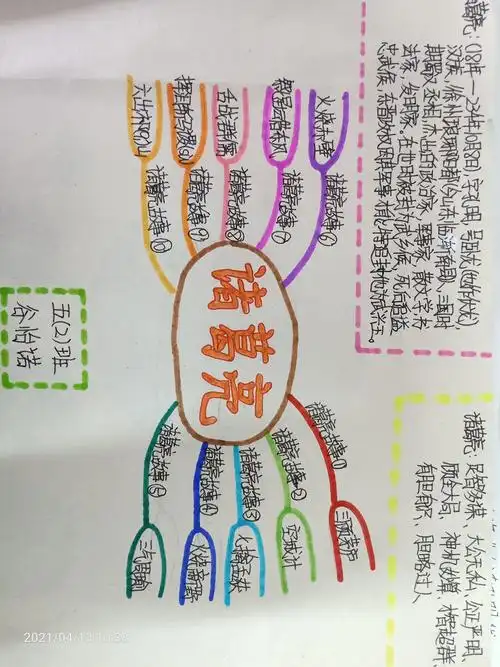 诸葛亮:(181年—234年10月8日),字孔明,号卧龙(也作伏龙),
汉族,徐州琅琊阳都(今山东临沂市沂南县),三国时
期蜀汉丞相,杰出的政治家、军事家、散文学书
法家、发明家。在世时被封为武乡侯,死后追谥
忠武侯,东晋政权因其军事才能特追封他为武兴王。
诸葛亮:足智多谋、大公无私、公正严明、
顾全大局、神机妙算、才智超群、
有胆有识、胆略过人、
诸葛亮
诸葛亮故事①
三顾茅庐
诸葛亮故事②
空城计
诸葛亮故事③
七擒孟获
诸葛亮故事④
火烧新野
诸葛亮故事⑤
三气周瑜
诸葛亮故事⑥
火烧赤壁
诸葛亮故事⑦
借东风
诸葛亮故事⑧
舌战群儒
诸葛亮故事⑨
挥泪斩马谡
诸葛亮故事⑩
六出祁山
五(2)班
谷怡诺